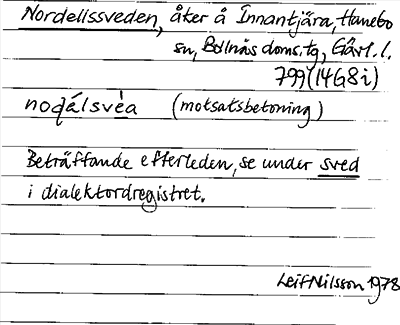 Nordellssveden, åker å Innantjära, Hanebo
sn, Bollnäs doms. tg, Gävl. l.
799 (14G8i)
noɖálsvèa (motsatsbetoning)
Beträffande efterleden, se under sved
i dialektordregistret.
Leif Nilsson 1978